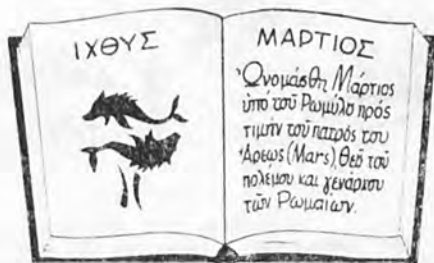 ΙΧΘΥΣ
ΜΑΡΤΙΟΣ
Ὠνομάσθη Μάρτιος
ὑπό τοῦ Ρωμύλο πρός
τιμήν τοῦ πατρός του
Ἄρεως (Mars), Θεό τοῦ
πολέμου και γενάρχου
τῶν Ρωμαίων.